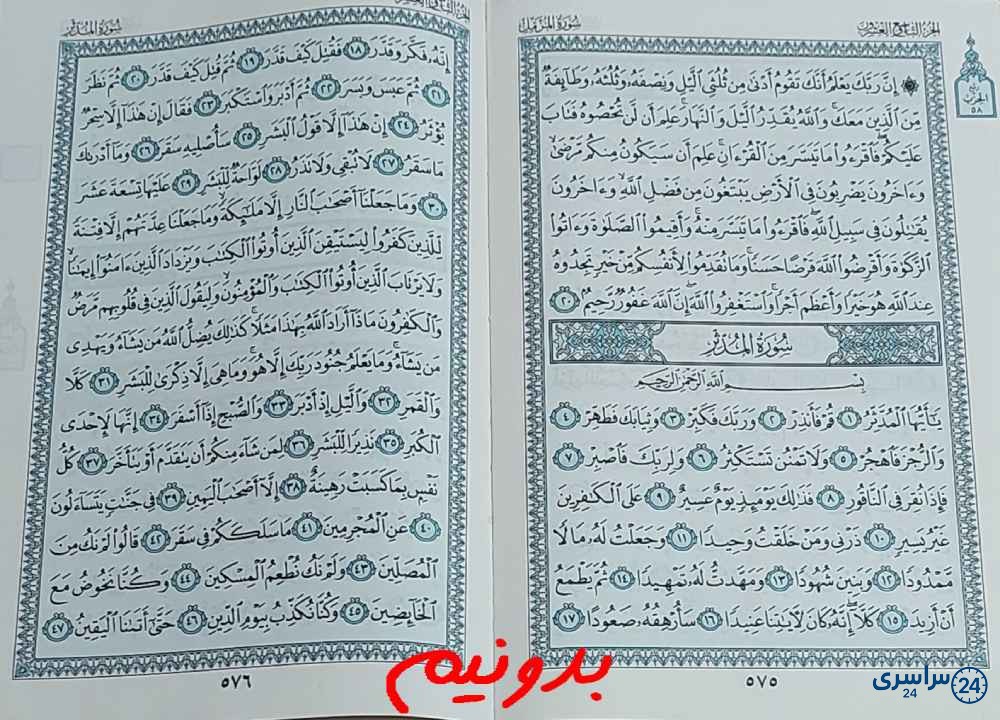 الجزء التاسع والعشرون
سورة المزمل
۞ إِنَّ رَبَّكَ يَعْلَمُ أَنَّكَ تَقُومُ أَدْنَىٰ مِن ثُلُثَىِ ٱلَّيْلِ وَنِصْفَهُۥ وَثُلُثَهُۥ وَطَآئِفَةٌ
مِّنَ ٱلَّذِينَ مَعَكَ ۚ وَٱللَّهُ يُقَدِّرُ ٱلَّيْلَ وَٱلنَّهَارَ ۚ عَلِمَ أَن لَّن تُحْصُوهُ فَتَابَ
عَلَيْكُمْ ۖ فَٱقْرَءُوا۟ مَا تَيَسَّرَ مِنَ ٱلْقُرْءَانِ ۚ عَلِمَ أَن سَيَكُونُ مِنكُم مَّرْضَىٰ ۙ
وَءَاخَرُونَ يَضْرِبُونَ فِى ٱلْأَرْضِ يَبْتَغُونَ مِن فَضْلِ ٱللَّهِ ۙ وَءَاخَرُونَ
يُقَـٰتِلُونَ فِى سَبِيلِ ٱللَّهِ ۖ فَٱقْرَءُوا۟ مَا تَيَسَّرَ مِنْهُ ۚ وَأَقِيمُوا۟ ٱلصَّلَوٰةَ وَءَاتُوا۟
ٱلزَّكَوٰةَ وَأَقْرِضُوا۟ ٱللَّهَ قَرْضًا حَسَنًا ۚ وَمَا تُقَدِّمُوا۟ لِأَنفُسِكُم مِّنْ خَيْرٍ تَجِدُوهُ
عِندَ ٱللَّهِ هُوَ خَيْرًا وَأَعْظَمَ أَجْرًا ۚ وَٱسْتَغْفِرُوا۟ ٱللَّهَ ۖ إِنَّ ٱللَّهَ غَفُورٌ رَّحِيمٌۢ ٢٠
سورة المدثر
بِسْمِ ٱللَّهِ ٱلرَّحْمَـٰنِ ٱلرَّحِيمِ
يَـٰٓأَيُّهَا ٱلْمُدَّثِّرُ ١ قُمْ فَأَنذِرْ ٢ وَرَبَّكَ فَكَبِّرْ ٣ وَثِيَابَكَ فَطَهِّرْ ٤
وَٱلرُّجْزَ فَٱهْجُرْ ٥ وَلَا تَمْنُن تَسْتَكْثِرُ ٦ وَلِرَبِّكَ فَٱصْبِرْ ٧
فَإِذَا نُقِرَ فِى ٱلنَّاقُورِ ٨ فَذَٰلِكَ يَوْمَئِذٍ يَوْمٌ عَسِيرٌ ٩ عَلَى ٱلْكَـٰفِرِينَ
غَيْرُ يَسِيرٍ ١٠ ذَرْنِى وَمَنْ خَلَقْتُ وَحِيدًا ١١ وَجَعَلْتُ لَهُۥ مَالًا
مَّمْدُودًا ١٢ وَبَنِينَ شُهُودًا ١٣ وَمَهَّدتُّ لَهُۥ تَمْهِيدًا ١٤ ثُمَّ يَطْمَعُ
أَنْ أَزِيدَ ١٥ كَلَّآ ۖ إِنَّهُۥ كَانَ لِـَٔايَـٰتِنَا عَنِيدًا ١٦ سَأُرْهِقُهُۥ صَعُودًا ١٧
٥٧٥
ربع
الحزب
٥٨
سورة المدثر
الجزء التاسع والعشرون
إِنَّهُۥ فَكَّرَ وَقَدَّرَ ١٨ فَقُتِلَ كَيْفَ قَدَّرَ ١٩ ثُمَّ قُتِلَ كَيْفَ قَدَّرَ ٢٠ ثُمَّ نَظَرَ
٢١ ثُمَّ عَبَسَ وَبَسَرَ ٢٢ ثُمَّ أَدْبَرَ وَٱسْتَكْبَرَ ٢٣ فَقَالَ إِنْ هَـٰذَآ إِلَّا سِحْرٌ
يُؤْثَرُ ٢٤ إِنْ هَـٰذَآ إِلَّا قَوْلُ ٱلْبَشَرِ ٢٥ سَأُصْلِيهِ سَقَرَ ٢٦ وَمَآ أَدْرَىٰكَ
مَا سَقَرُ ٢٧ لَا تُبْقِى وَلَا تَذَرُ ٢٨ لَوَّاحَةٌ لِّلْبَشَرِ ٢٩ عَلَيْهَا تِسْعَةَ عَشَرَ
٣٠ وَمَا جَعَلْنَآ أَصْحَـٰبَ ٱلنَّارِ إِلَّا مَلَـٰٓئِكَةً ۙ وَمَا جَعَلْنَا عِدَّتَهُمْ إِلَّا فِتْنَةً
لِّلَّذِينَ كَفَرُوا۟ لِيَسْتَيْقِنَ ٱلَّذِينَ أُوتُوا۟ ٱلْكِتَـٰبَ وَيَزْدَادَ ٱلَّذِينَ ءَامَنُوٓا۟ إِيمَـٰنًا ۙ
وَلَا يَرْتَابَ ٱلَّذِينَ أُوتُوا۟ ٱلْكِتَـٰبَ وَٱلْمُؤْمِنُونَ ۙ وَلِيَقُولَ ٱلَّذِينَ فِى قُلُوبِهِم مَّرَضٌ
وَٱلْكَـٰفِرُونَ مَاذَآ أَرَادَ ٱللَّهُ بِهَـٰذَا مَثَلًا ۚ كَذَٰلِكَ يُضِلُّ ٱللَّهُ مَن يَشَآءُ وَيَهْدِى
مَن يَشَآءُ ۚ وَمَا يَعْلَمُ جُنُودَ رَبِّكَ إِلَّا هُوَ ۚ وَمَا هِىَ إِلَّا ذِكْرَىٰ لِلْبَشَرِ ٣١ كَلَّا
وَٱلْقَمَرِ ٣٢ وَٱلَّيْلِ إِذْ أَدْبَرَ ٣٣ وَٱلصُّبْحِ إِذَآ أَسْفَرَ ٣٤ إِنَّهَا لَإِحْدَى
ٱلْكُبَرِ ٣٥ نَذِيرًا لِّلْبَشَرِ ٣٦ لِمَن شَآءَ مِنكُمْ أَن يَتَقَدَّمَ أَوْ يَتَأَخَّرَ ٣٧ كُلُّ
نَفْسٍۭ بِمَا كَسَبَتْ رَهِينَةٌ ٣٨ إِلَّآ أَصْحَـٰبَ ٱلْيَمِينِ ٣٩ فِى جَنَّـٰتٍ يَتَسَآءَلُونَ
٤٠ عَنِ ٱلْمُجْرِمِينَ ٤١ مَا سَلَكَكُمْ فِى سَقَرَ ٤٢ قَالُوا۟ لَمْ نَكُ مِنَ
ٱلْمُصَلِّينَ ٤٣ وَلَمْ نَكُ نُطْعِمُ ٱلْمِسْكِينَ ٤٤ وَكُنَّا نَخُوضُ مَعَ
ٱلْخَآئِضِينَ ٤٥ وَكُنَّا نُكَذِّبُ بِيَوْمِ ٱلدِّينِ ٤٦ حَتَّىٰٓ أَتَىٰنَا ٱلْيَقِينُ ٤٧
٥٧٦
بدونیم
سراسری 24
24